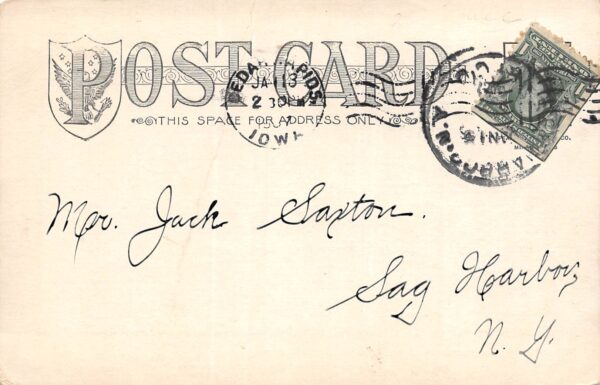 POST CARD
THIS SPACE FOR ADDRESS ONLY
CEDAR RAPIDS,
JA 13
2 30
IOWA
N.Y.
Mr. Jack Saxton.
Sag Harbor,
N. Y.